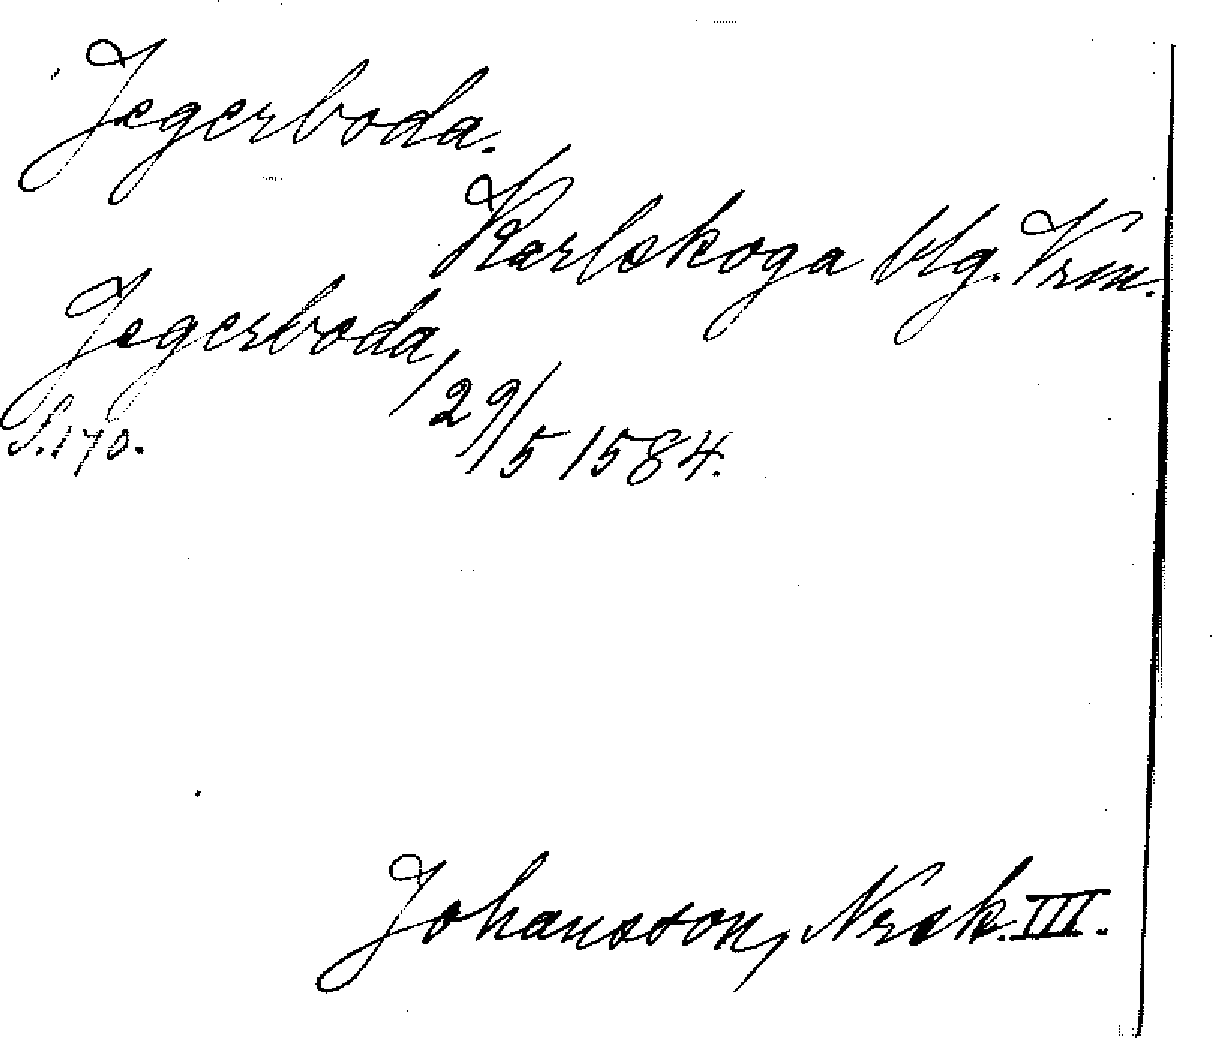 Jegerboda.
Karlskoga blg. Vrm.
Jegerboda,
S. 170.
29/5 1584.
Johansson, Nrsk. III.